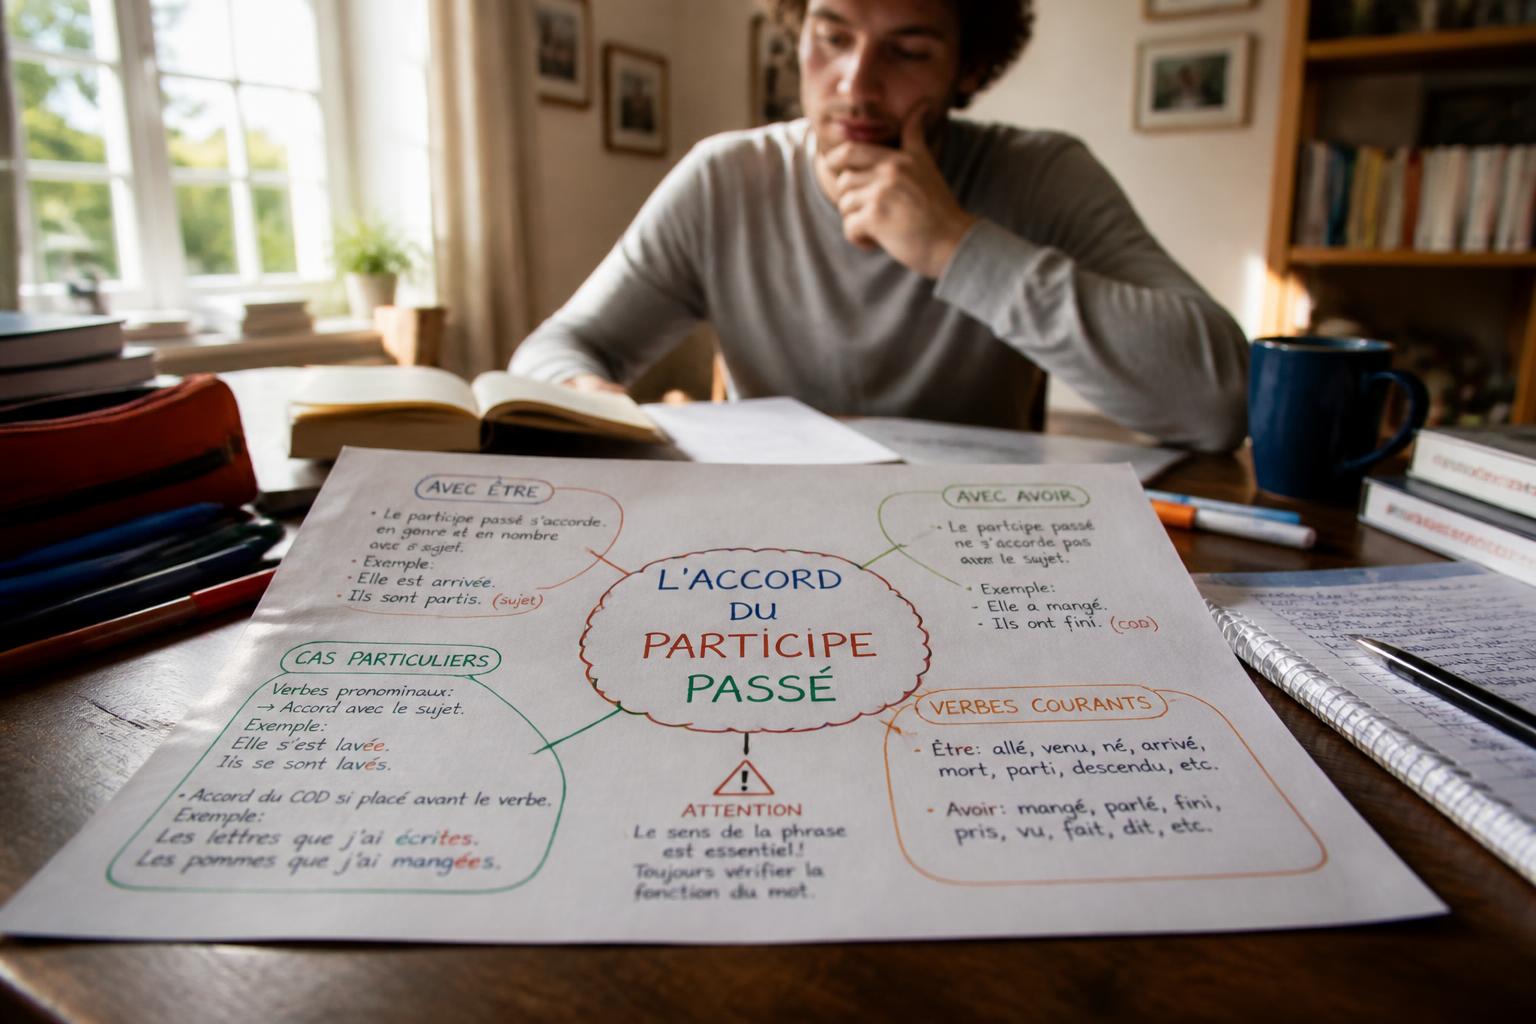 L'ACCORD
DU
PARTICIPE
PASSÉ
AVEC ÊTRE
• Le participe passé s'accorde
en genre et en nombre
avec sujet.
• Exemple:
• Elle est arrivée.
• Ils sont partis. (sujet)
AVEC AVOIR
• Le partcipe passé
ne s'accorde pas
avec le sujet.
• Exemple:
- Elle a mangé.
- Ils ont fini. (COD)
CAS PARTICULIERS
Verbes pronominaux:
→ Accord avec le sujet.
Exemple:
Elle s'est lavée.
Ils se sont lavés.
• Accord du COD si placé avant le verbe.
Exemple:
Les lettres que j'ai écrites.
Les pommes que j'ai mangées.
!
ATTENTION
Le sens de la phrase
est essentiel!
Toujours vérifier la
fonction du mot.
VERBES COURANTS
- Être: allé, venu, né, arrivé,
mort, parti, descendu, etc.
- Avoir: mangé, parlé, fini,
pris, vu, fait, dit, etc.